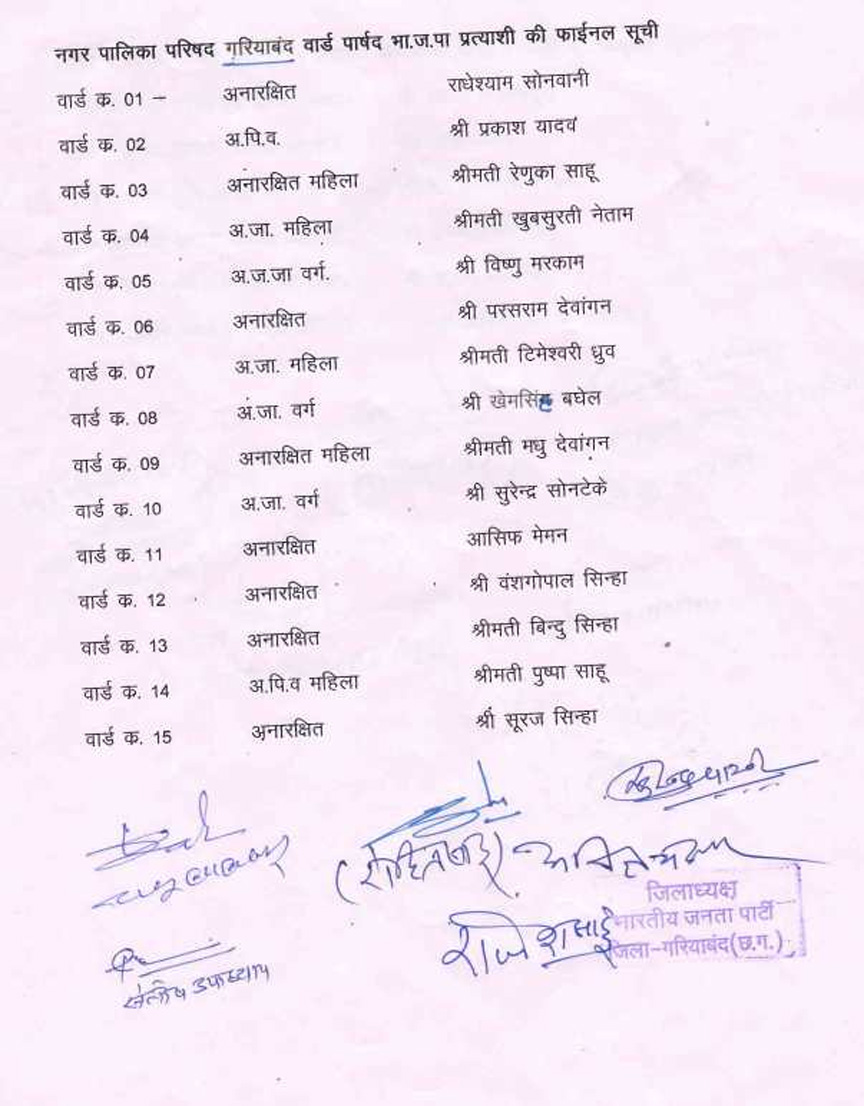 नगर पालिका परिषद गरियाबंद वार्ड पार्षद भा.ज.पा प्रत्याशी की फाईनल सूची
वार्ड क. 01 – अनारक्षित राधेश्याम सोनवानी
वार्ड क. 02 अ.पि.व. श्री प्रकाश यादव
वार्ड क. 03 अनारक्षित महिला श्रीमती रेणुका साहू
वार्ड क. 04 अ.जा. महिला श्रीमती खुबसुरती नेताम
वार्ड क. 05 अ.ज.जा वर्ग. श्री विष्णु मरकाम
वार्ड क. 06 अनारक्षित श्री परसराम देवांगन
वार्ड क. 07 अ.जा. महिला श्रीमती टिमेश्वरी ध्रुव
वार्ड क. 08 अ.जा. वर्ग श्री खेमसिंह बघेल
वार्ड क. 09 अनारक्षित महिला श्रीमती मधु देवांगन
वार्ड क. 10 अ.जा. वर्ग श्री सुरेन्द्र सोनटेके
वार्ड क. 11 अनारक्षित आसिफ मेमन
वार्ड क. 12 अनारक्षित श्री वंशगोपाल सिन्हा
वार्ड क. 13 अनारक्षित श्रीमती बिन्दु सिन्हा
वार्ड क. 14 अ.पि.व महिला श्रीमती पुष्पा साहू
वार्ड क. 15 अनारक्षित श्री सूरज सिन्हा
(रोहित साहू)
जिलाध्यक्ष
राजेश साहू भारतीय जनता पार्टी
जिला-गरियाबंद(छ.ग.)
संतोष उपाध्याय